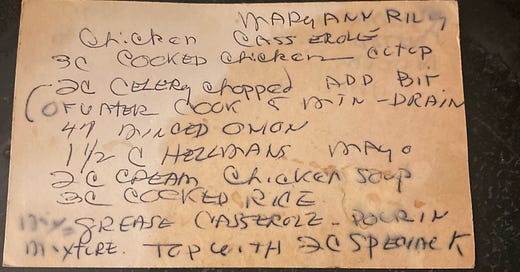 MARY ANN RILY
Chicken CASSEROLE
3C COOKED Chicken cutup
2C CELERY chopped ADD BIT
OF WATER COOK 5 MIN-DRAIN
MINCED ONION
1 1/2 C HELLMANS MAYO
2C CREAM Chicken SOUP
3C COOKED RICE
GREASE CASSEROLE - POUR IN
MIXTURE. TOP WITH 2C SPECIAL K